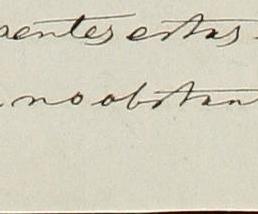 entes estas
no obstan